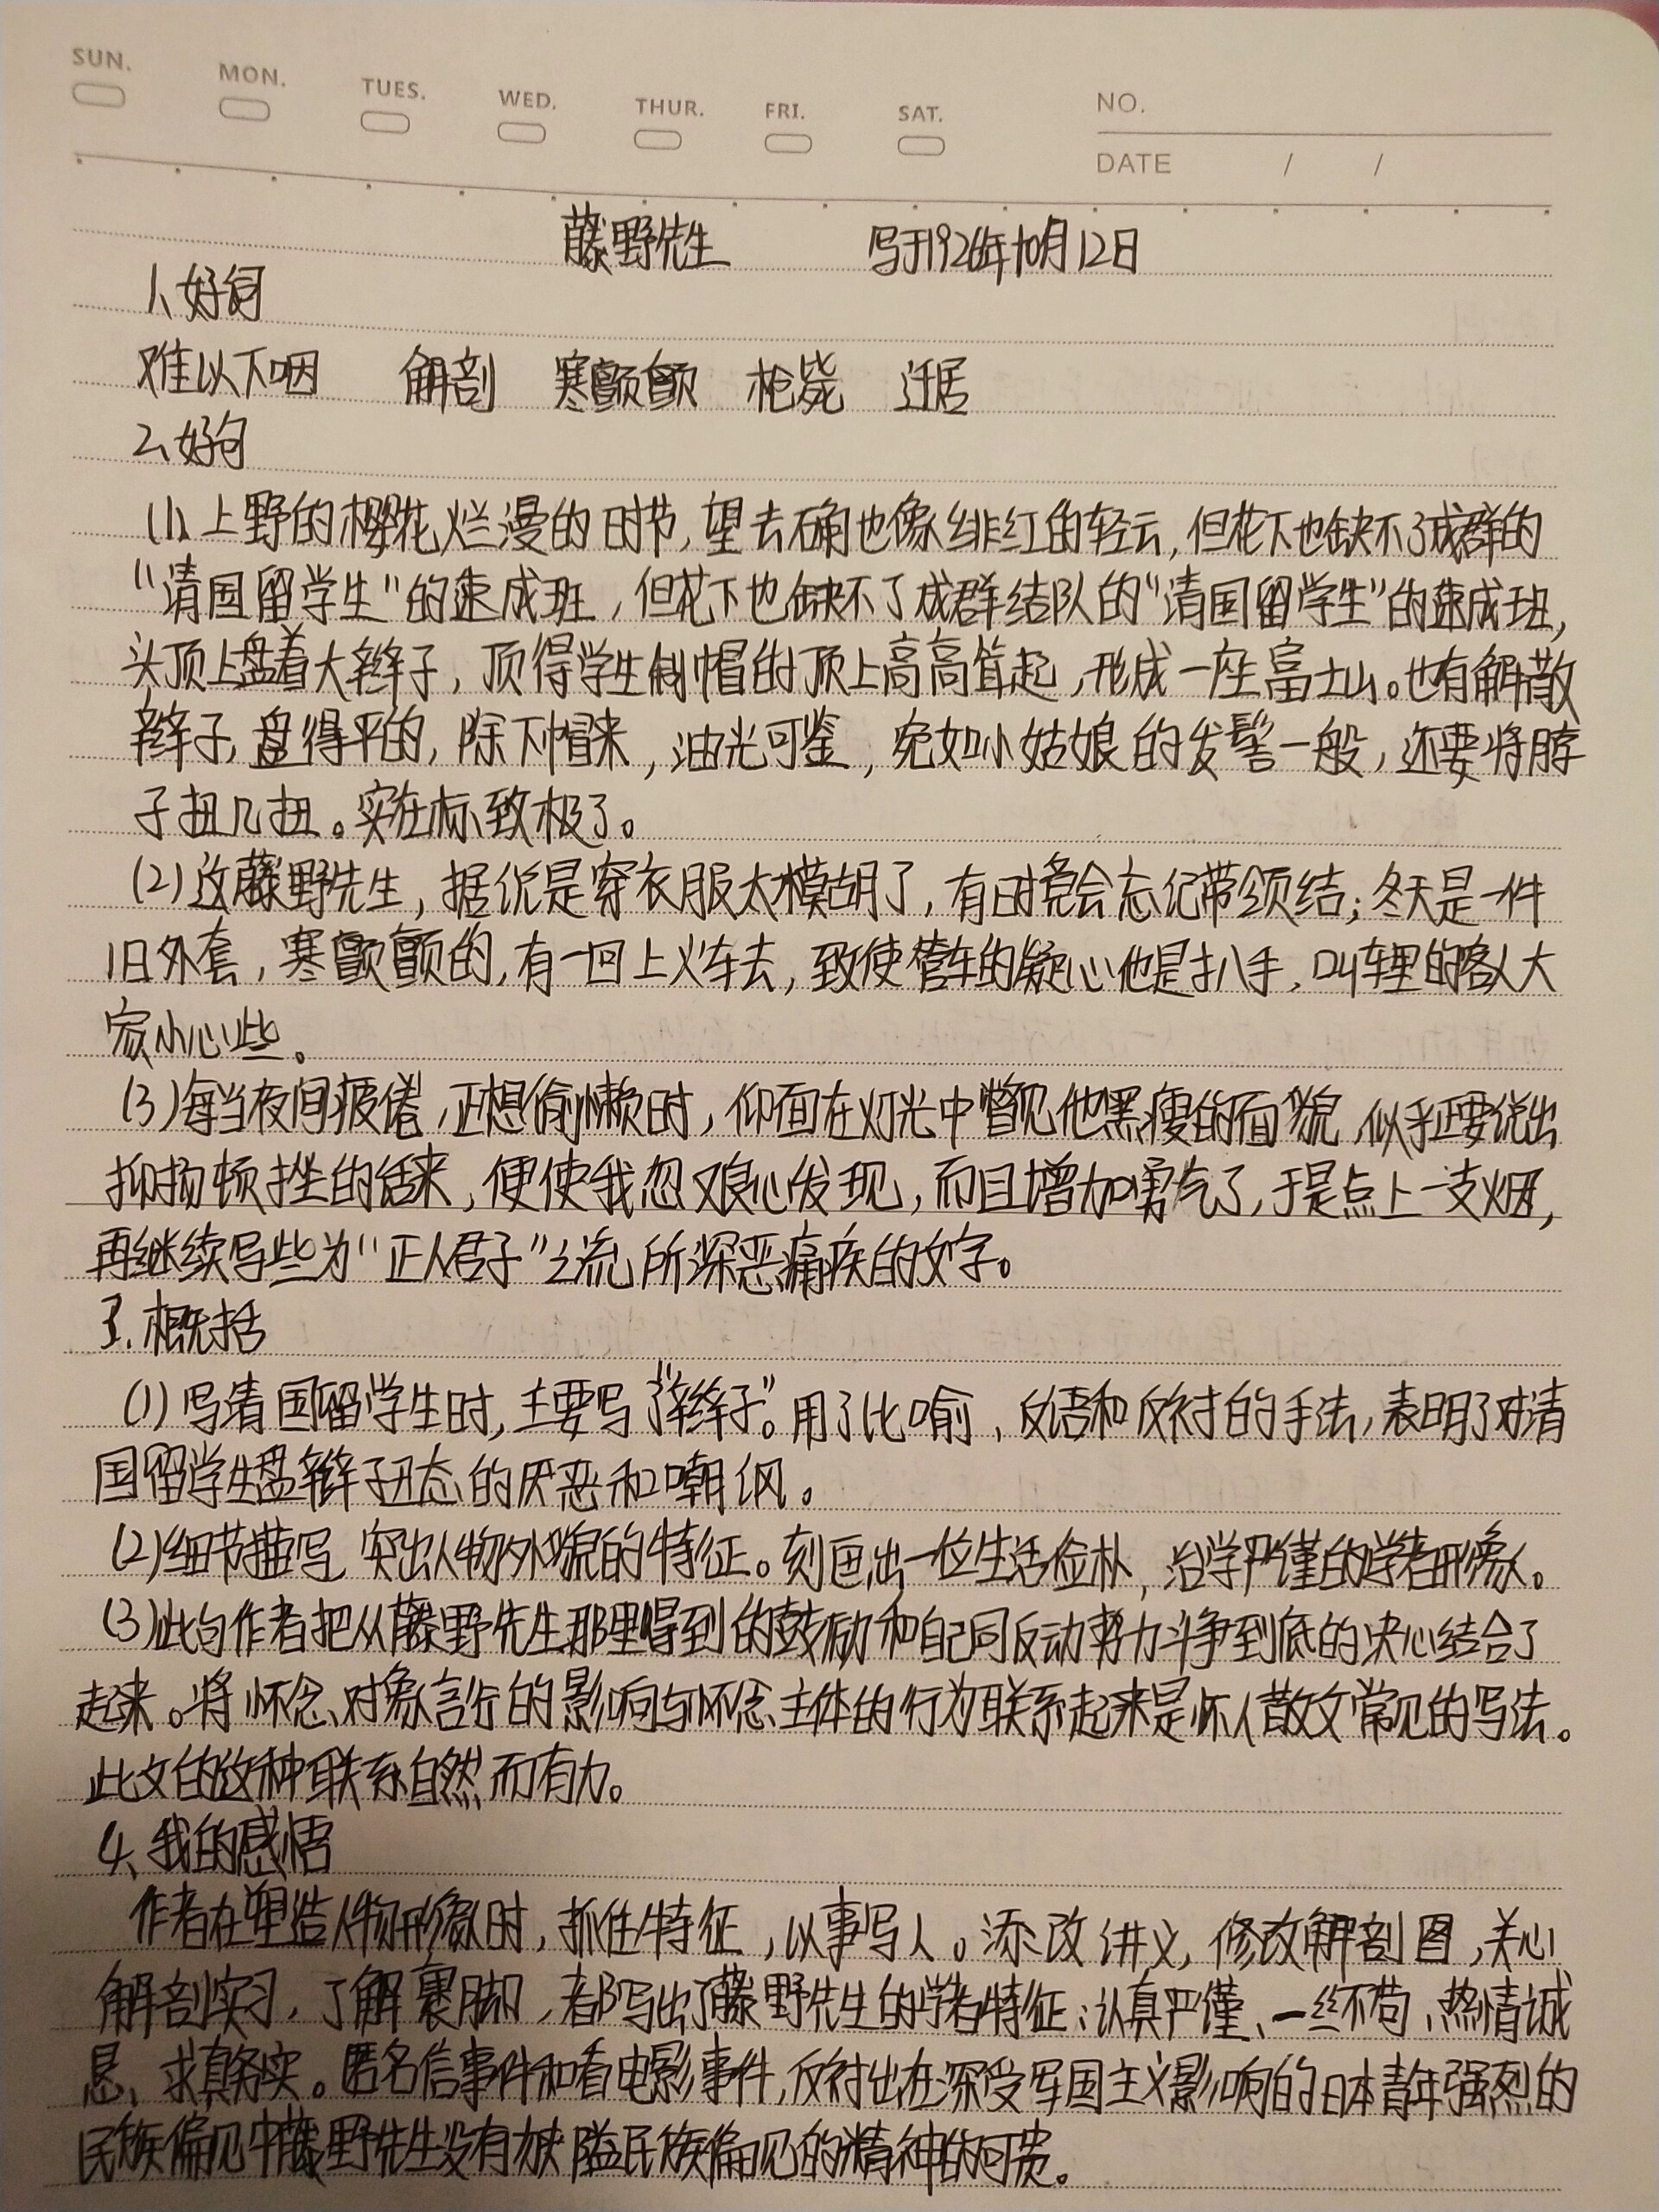 SUN. MON. TUES. WED. THUR. FRI. SAT. NO.
DATE / /
藤野先生 写于1926年10月12日
1、好词
难以下咽 解剖 寒颤颤 枪毙 迁居
2、好句
(1)、上野的樱花烂漫的时节,望去确也像绯红的轻云,但花下也缺不了成群的
“清国留学生”的速成班,但花下也缺不了成群结队的“清国留学生”的速成班,
头顶上盘着大辫子,顶得学生制帽的顶上高高耸起,形成一座富士山。也有解散
辫子,盘得平的,除下帽来,油光可鉴,宛如小姑娘的发髻一般,还要将脖
子扭几扭。实在标致极了。
(2)这藤野先生,据说是穿衣服太模胡了,有时竟会忘记带领结;冬天是一件
旧外套,寒颤颤的,有一回上火车去,致使管车的疑心他是扒手,叫车里的客人大
家小心些。
(3)每当夜间疲倦,正想偷懒时,仰面在灯光中瞥见他黑瘦的面貌,似乎正要说出
抑扬顿挫的话来,便使我忽又良心发现,而且增加勇气了,于是点上一支烟,
再继续写些为“正人君子”之流所深恶痛疾的文字。
3.概括
(1)写清国留学生时,主要写了“辫子”。用了比喻、反语和反衬的手法,表明了对清
国留学生盘辫子丑态的厌恶和嘲讽。
(2)细节描写,突出人物外貌的特征。刻画出一位生活俭朴,治学严谨的学者形象。
(3)此句作者把从藤野先生那里得到的鼓励和自己同反动势力斗争到底的决心结合了
起来。将怀念对象言行的影响与怀念主体的行为联系起来是怀人散文常见的写法。
此文的这种联系自然而有力。
4、我的感悟
作者在塑造人物形象时,抓住特征,以事写人。添改讲义,修改解剖图,关心
解剖实习,了解裹脚,都写出了藤野先生的学者特征:认真严谨、一丝不苟、热情诚
恳、求真务实。匿名信事件和看电影事件,反衬出在深受军国主义影响的日本青年强烈的
民族偏见中藤野先生没有狭隘民族偏见的精神的可贵。